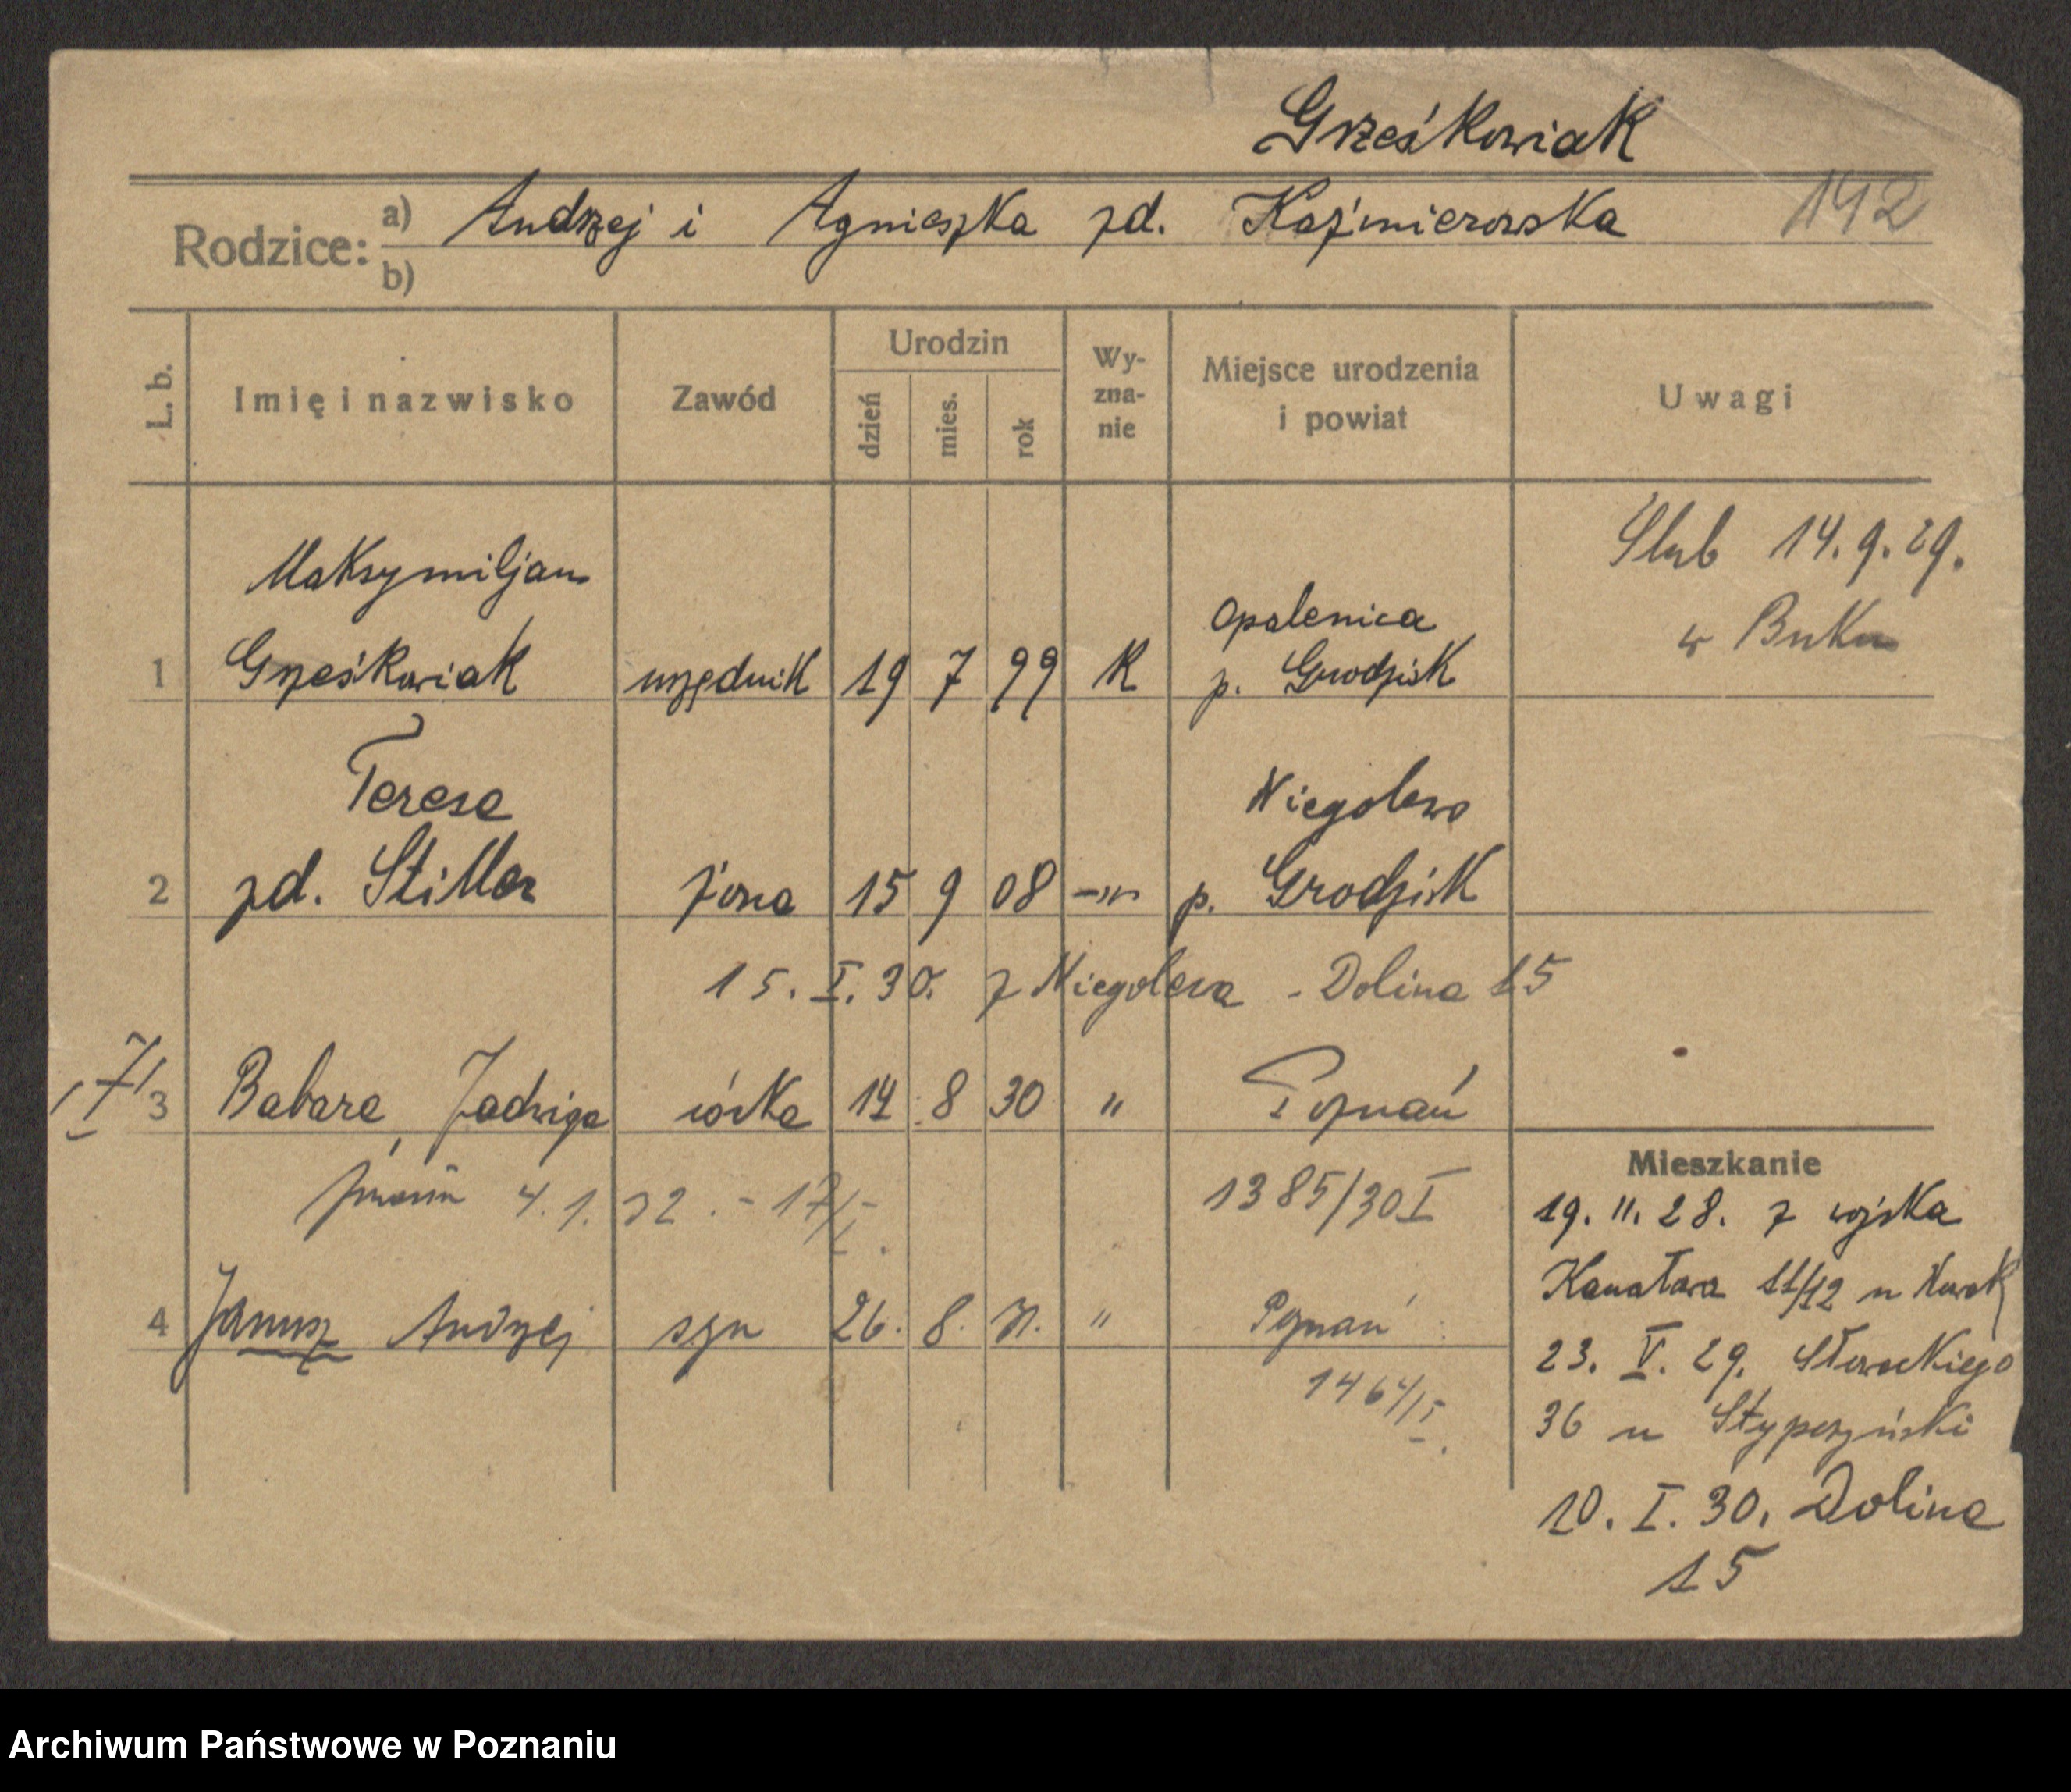 Grześkowiak
Rodzice: a) Andrzej i Agnieszka zd. Kaźmierowska 142
b)
L. b. Imię i nazwisko Zawód Urodzin dzień mies. rok Wy-zna-nie Miejsce urodzenia i powiat Uwagi
Maksymiljan Opalenica Ślub 14.9.29.
w Buku
1 Grześkowiak urzędnik 19 7 99 K p. Grodzisk
Teresa Niegolewo
2 zd. Stiller żona 15 9 08 -"- p. Grodzisk
15. I. 30. z Niegolewa - Dolina 15
3 Babara, Jadwiga córka 14 8 30 " Poznań
4. 1. 32. - 17/I. 1385/30 I
4 Janusz Andrzej syn 26. 8. 31. " Poznań
1464/I.
Mieszkanie
19. 11. 28. z wojska
Kanałowa 11/12 u Nowak
23. V. 29. Słowackiego
36 u Stypczyński
10. I. 30. Dolina
15
Archiwum Państwowe w Poznaniu